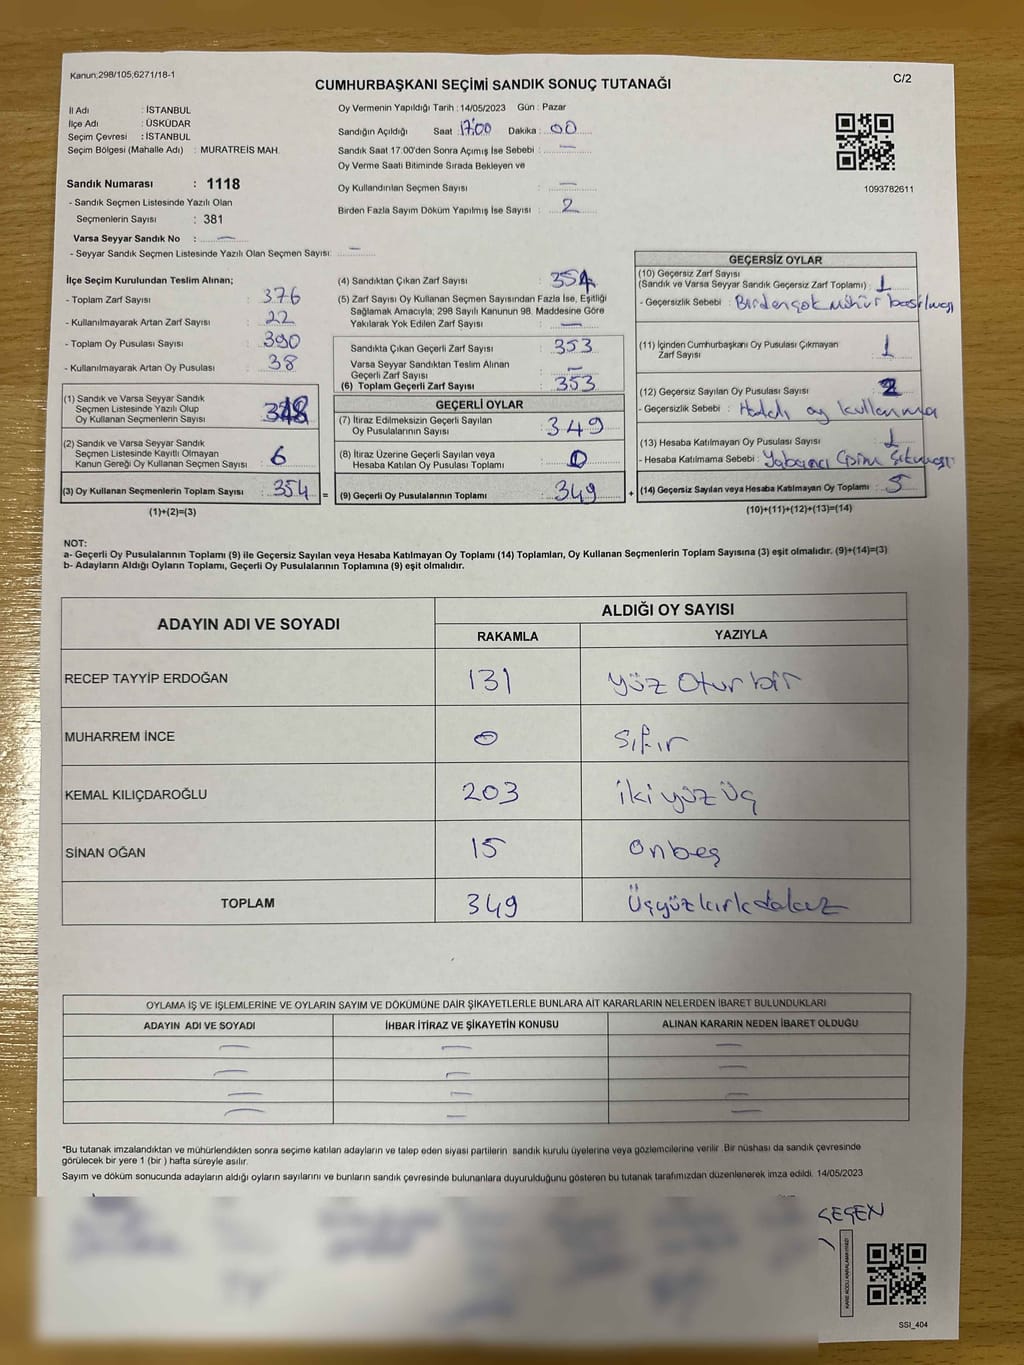 Kanun;298/105,6271/18-1
C/2
CUMHURBAŞKANI SEÇİMİ SANDIK SONUÇ TUTANAĞI
İl Adı : İSTANBUL
İlçe Adı : ÜSKÜDAR
Seçim Çevresi : İSTANBUL
Seçim Bölgesi (Mahalle Adı) : MURATREİS MAH.
Sandık Numarası : 1118
- Sandık Seçmen Listesinde Yazılı Olan
Seçmenlerin Sayısı : 381
Varsa Seyyar Sandık No : —
- Seyyar Sandık Seçmen Listesinde Yazılı Olan Seçmen Sayısı: —
Oy Vermenin Yapıldığı Tarih : 14/05/2023 Gün : Pazar
Sandığın Açıldığı Saat : 17:00 Dakika : 00
Sandık Saat 17:00'den Sonra Açımış İse Sebebi : —
Oy Verme Saati Bitiminde Sırada Bekleyen ve
Oy Kullandırılan Seçmen Sayısı : —
Birden Fazla Sayım Döküm Yapılmış İse Sayısı : 2
1093782611
İlçe Seçim Kurulundan Teslim Alınan;
- Toplam Zarf Sayısı : 376
- Kullanılmayarak Artan Zarf Sayısı : 22
- Toplam Oy Pusulası Sayısı : 390
- Kullanılmayarak Artan Oy Pusulası : 38
(1) Sandık ve Varsa Seyyar Sandık
Seçmen Listesinde Yazılı Olup
Oy Kullanan Seçmenlerin Sayısı : 348
(2) Sandık ve Varsa Seyyar Sandık
Seçmen Listesinde Kayıtlı Olmayan
Kanun Gereği Oy Kullanan Seçmen Sayısı : 6
(3) Oy Kullanan Seçmenlerin Toplam Sayısı : 354 =
(1)+(2)=(3)
(4) Sandıktan Çıkan Zarf Sayısı : 354
(5) Zarf Sayısı Oy Kullanan Seçmen Sayısından Fazla İse, Eşitliği
Sağlamak Amacıyla; 298 Sayılı Kanunun 98. Maddesine Göre
Yakılarak Yok Edilen Zarf Sayısı : —
Sandıkta Çıkan Geçerli Zarf Sayısı : 353
Varsa Seyyar Sandıktan Teslim Alınan
Geçerli Zarf Sayısı : —
(6) Toplam Geçerli Zarf Sayısı : 353
GEÇERLİ OYLAR
(7) İtiraz Edilmeksizin Geçerli Sayılan
Oy Pusulalarının Sayısı : 349
(8) İtiraz Üzerine Geçerli Sayılan veya
Hesaba Katılan Oy Pusulası Toplamı : 0
(9) Geçerli Oy Pusulalarının Toplamı : 349 +
GEÇERSİZ OYLAR
(10) Geçersiz Zarf Sayısı
(Sandık ve Varsa Seyyar Sandık Geçersiz Zarf Toplamı) : 1
- Geçersizlik Sebebi : Birden çok mühür basılması
(11) İçinden Cumhurbaşkanı Oy Pusulası Çıkmayan
Zarf Sayısı : 1
(12) Geçersiz Sayılan Oy Pusulası Sayısı : 2
- Geçersizlik Sebebi : Hatalı oy kullanma
(13) Hesaba Katılmayan Oy Pusulası Sayısı : 1
- Hesaba Katılmama Sebebi : Yabancı Cisim Çıkması
(14) Geçersiz Sayılan veya Hesaba Katılmayan Oy Toplamı : 5
(10)+(11)+(12)+(13)=(14)
NOT:
a- Geçerli Oy Pusulalarının Toplamı (9) ile Geçersiz Sayılan veya Hesaba Katılmayan Oy Toplamı (14) Toplamları, Oy Kullanan Seçmenlerin Toplam Sayısına (3) eşit olmalıdır. (9)+(14)=(3)
b- Adayların Aldığı Oyların Toplamı, Geçerli Oy Pusulalarının Toplamına (9) eşit olmalıdır.
ADAYIN ADI VE SOYADI
ALDIĞI OY SAYISI
RAKAMLA YAZIYLA
RECEP TAYYİP ERDOĞAN 131 yüz Otur bir
MUHARREM İNCE 0 sıfır
KEMAL KILIÇDAROĞLU 203 iki yüz üç
SİNAN OĞAN 15 onbeş
TOPLAM 349 Üçyüzkırkdokuz
OYLAMA İŞ VE İŞLEMLERİNE VE OYLARIN SAYIM VE DÖKÜMÜNE DAİR ŞİKAYETLERLE BUNLARA AİT KARARLARIN NELERDEN İBARET BULUNDUKLARI
ADAYIN ADI VE SOYADI İHBAR İTİRAZ VE ŞİKAYETİN KONUSU ALINAN KARARIN NEDEN İBARET OLDUĞU
— — —
— — —
— — —
— — —
*Bu tutanak imzalandıktan ve mühürlendikten sonra seçime katılan adayların ve talep eden siyasi partilerin sandık kurulu üyelerine veya gözlemcilerine verilir. Bir nüshası da sandık çevresinde
görülecek bir yere 1 (bir ) hafta süreyle asılır.
Sayım ve döküm sonucunda adayların aldığı oyların sayılarını ve bunların sandık çevresinde bulunanlara duyurulduğunu gösteren bu tutanak tarafımızdan düzenlenerek imza edildi. 14/05/2023
KARE KODU KARALAMAYINIZ!
SSI_404